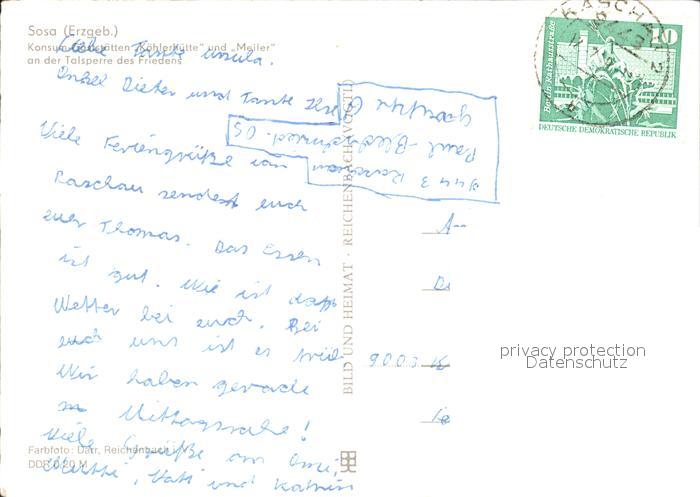 Sosa (Erzgeb.)
Konsum-Gaststätten "Köhlerhütte" und "Meiler"
an der Talsperre des Friedens
Liebe Tante Ursula.
Onkel Dieter und Tante Ilse
Viele Feriengrüße von
Raschau sendet euch
euer Thomas. Das Essen
ist gut. Wie ist das
Wetter bei euch. Bei
uns ist es trüb
Wir haben gerade
Mittagsruhe!
Viele Grüße an Omi,
Mutti, Vati und Katrin
Paul
9443 Raschau
BILD UND HEIMAT · REICHENBACH (VOGTL)
Farbfoto: Darr, Reichenbach i. V.
DDR 0,20 M
RASCHAU 2
Berlin, Rathausstraße
10
DEUTSCHE DEMOKRATISCHE REPUBLIK
A
9003
privacy protection
Datenschutz